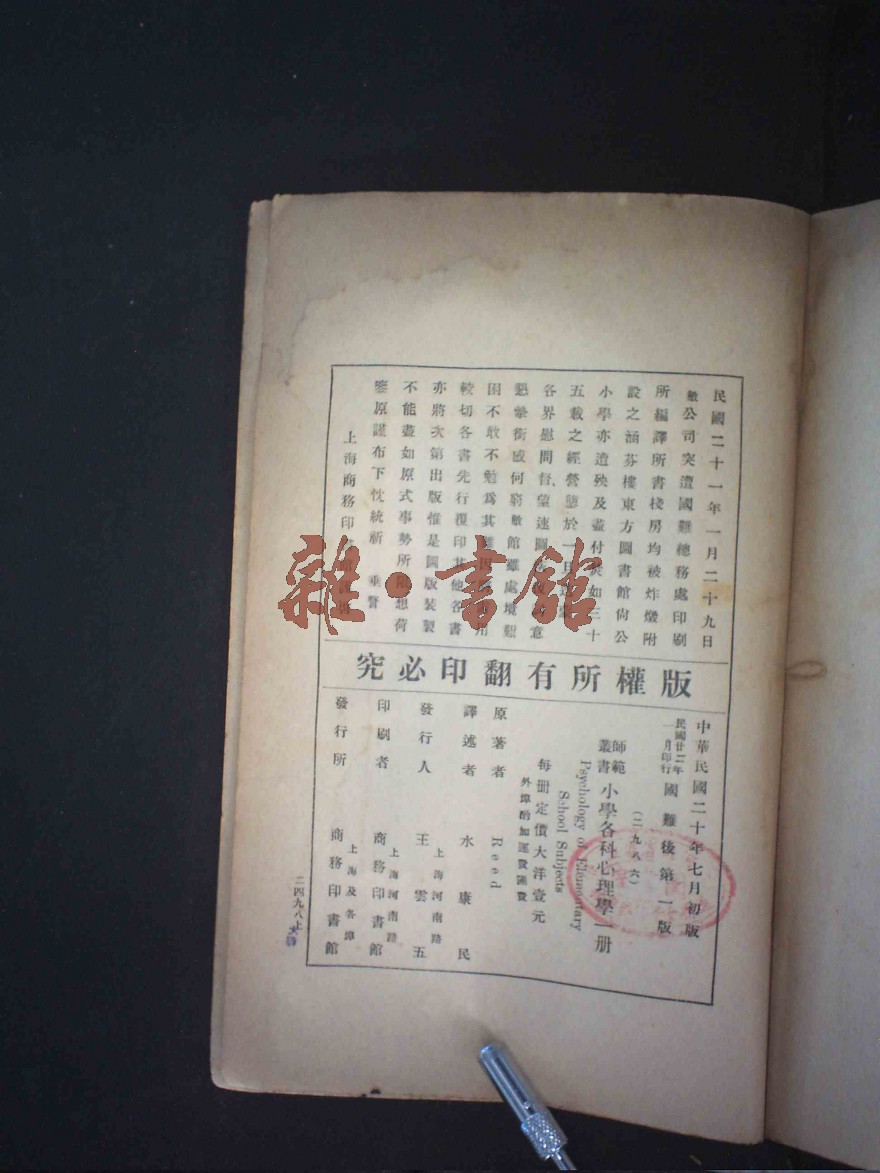 民國二十一年一月二十九日
敝公司突遭國難總務處印刷
所編譯所書棧房均被炸燬附
設之涵芬樓東方圖書館尙公
小學亦遭殃及盡付焚如三十
五載之經營隳於一旦
各界慰問督望速圖意
懇摯銜感何窮敝館雖處境艱
困不敢不勉爲其用
較切各書先行覆印其他各書
亦將次第出版惟是圖版裝製
不能盡如原式事勢所限想荷
鑒原謹布下忱統祈 垂詧
上海商務印
雜·書館
版權所有翻印必究
中華民國二十年七月初版
民國廿二年一月印行國難後第一版
(二九八六)
師範叢書 小學各科心理學一册
Psychology of Elementary
School Subjects
每册定價大洋壹元
外埠酌加運費匯費
原著者 Reed
譯述者 水康民
發行人 王雲五
上海河南路
印刷者 商務印書館
上海及各埠
發行所 商務印書館
二四九八上